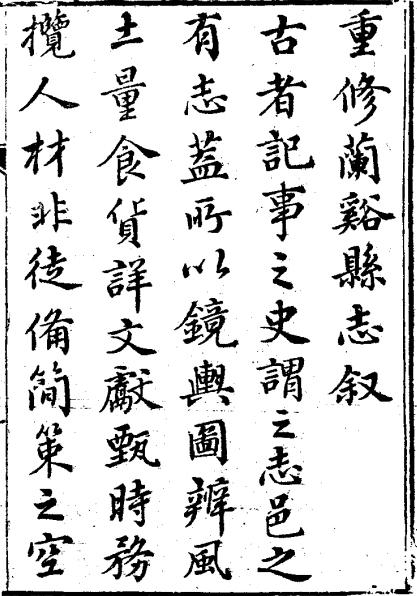 重修蘭谿縣志叙
古者記事之史謂之志邑之
有志葢所以鏡輿圖辨風
土量食貨詳文獻甄時務
攬人材非徒備簡策之空